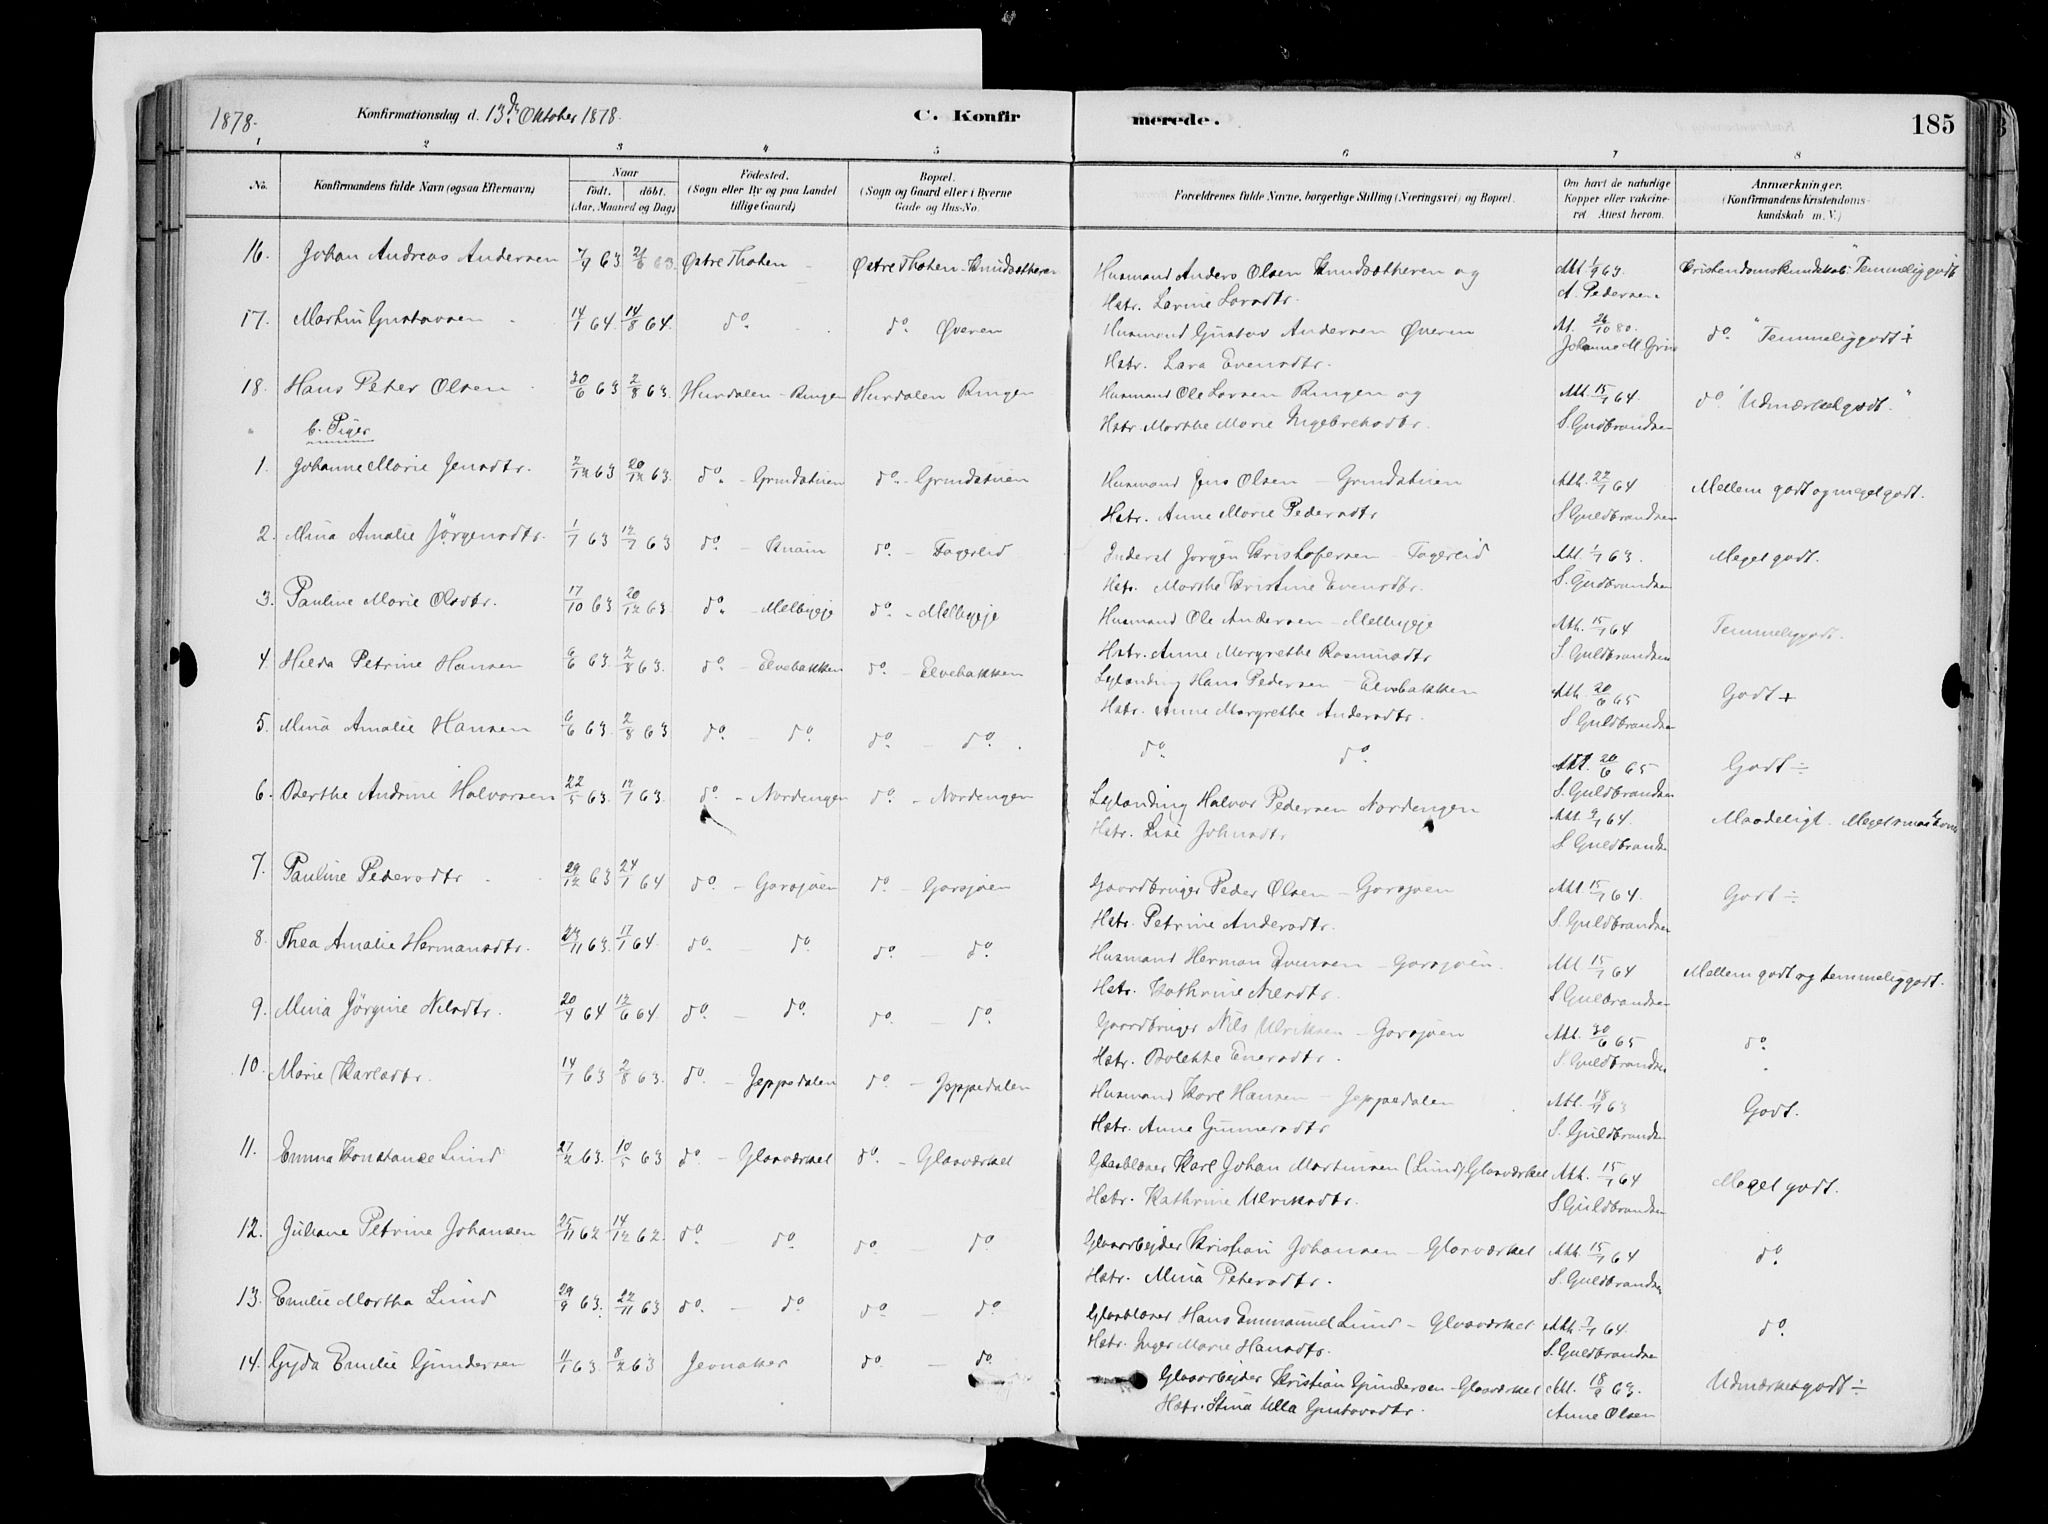 1878. Konfirmationsdag d. 13de Oktober 1878. C. Konfirmerede. 185
1 2 3 4 5 6 7 8
No. Konfirmandens fulde Navn (ogsaa Efternavn) Naar født. døbt. (Aar, Maaned og Dag) Födested. (Sogn eller By og paa Landet tillige Gaard) Bopæl. (Sogn og Gaard eller i Byerne Gade og Hus-No. Forældrenes fulde Navne, borgerlige Stilling (Næringsvei) og Bopæl. Om havt de naturlige Kopper eller vakcineret Attest herom. Anmærkninger. (Konfirmandens Kristendomskundskab m. V.)
16. Johan Andreas Andersen 63 63. Østre Thoten Østre Thoten - Knudsætheren Husmand Anders Olsen Knudsætheren og Att. 63. Kristendomskundskab: "Temmelig godt
Hstr. Larsdtr. A. Pedersen
17. Martin Gustavsen 14/1 64. 14/8 64. do do Øveren Husmand Gustav Andersen Øveren At. 26/10 80. do "Temmelig godt +
Hstr. Lara Evensdtr. Johanne M.
18. Hans Peter Olsen 30/6 63 2/8 63. Hurdalen - Ringen Hurdalen Ringen Husmand Ole Larsen Ringen og Att. 15/7 64. do "Udmærket godt."
" b. Piger Hstr. Marthe Marie Ingebretsdtr. S. Gudbrandsen
1. Johanne Marie Jensdtr. 2/12 63 20/12 63. do - Grindstuen do - Grindstuen Husmand Jens Olsen - Grindstuen Att. 22/7 64 Mellem godt og meget godt.
Hstr. Anne Marie Pedersdtr S Guldbrandsen
2. Mina Amalie Jørgensdtr. 1/7 63 12/7 63 do - Knain do - Fagerlid Inderst Jørgen Kristofersen - Fagerlid Att. 1/7 63. Meget godt.
Hstr. Marthe Kristine Evensdtr. S. Gudbrandsen
3. Pauline Marie Olsdtr. 17/10 63 20/12 63. do - Melbyeje do - Melbyeje Husmand Ole Andersen - Melbyeje Att. 15/7 64 Temmelig godt.
Hstr. Anne Margrethe Rasmusdtr S. Guldbrandsen
4. Hilda Petrine Hansen 6/6 63. 2/8 63. do - Elvebakken do - Elvebakken Leilænding Hans Pedersen - Elvebakken Att. 20/6 65 Godt +
Hstr. Anne Margrethe Andersdtr. S Guldbrandsen
5. Mina Amalie Hansen 6/6 63. 2/8 63 do - do do - do. do do Att. 20/6 65 Godt ÷
S. Guldbrandsen
6. Berthe Andrine Halvorsen 22/5 63. 12/7 63. do - Nordengen do - Nordengen Leilænding Halvor Pedersen Nordengen Att. 9/7 64. Maadeligt. Meget
Hstr. Lise Johnsdtr S Guldbrandsen
7. Pauline Pedersdtr 29/12 63 24/1 64 do - Garsjøen do - Garsjøen Gaardbruger Peder Olsen - Garsjøen Att. 15/7 64. Godt ÷
Hstr. Petrine Andersdtr. S. Guldbrandsen
8. Thea Amalie Hermansdtr. 23/11 63. 17/1 64. do - do do - do Husmand Herman Evensen - Garsjøen. Att 15/7 64 Mellem godt og temmelig godt.
Hstr. Kathrine Nilsdtr. S Guldbrandsen
9. Mina Jørgine Nilsdtr. 20/4 64 12/6 64. do - do do - do Gaardbruger Nils Ulriksen - Garsjøen Att. 30/6 65 do
Hstr. Bolette Enersdtr. S. Guldbrandsen
10. Marie Karlsdtr. 14/7 63 2/8 63. do - Jeppedalen do - Jeppedalen Husmand Karl Hansen - Jeppedalen Att. 18/9 63 Godt.
Hstr. Anne Gunnersdtr S. Guldbrandsen
11. Emma Konstance Lund 27/2 63. 10/5 63 do - Glasværket do - Glasværket Glasblæser Karl Johan Martinsen (Lund) Glasværket Att. 15/7 64 Meget godt.
Hstr. Kathrine Ulriksdtr. S Guldbrandsen
12. Juliane Petrine Johansen 25/11 62 14/12 62. do - do do - do Glasarbejder Kristian Johansen - Glasværket Att. 15/7 64 do
Hstr. Mina Petersdtr. S. Guldbrandsen
13. Emilie Martha Lund 29/9 63. 22/11 63 do - do do - do Glasblæser Hans Emmanuel Lund - Glasværket Att. 7/7 64. do
Hstr. Inger Marie Hansdtr. S. Guldbrandsen
14. Gyda Emilie Gundersen 11/1 63 8/2 63 Jevnaker do - do Glasarbejder Kristian Gundersen - Glasværket At. 18/9 63. Udmærket godt ÷
Hstr. Stina Ulla Gustavsdtr. Anne Olsen